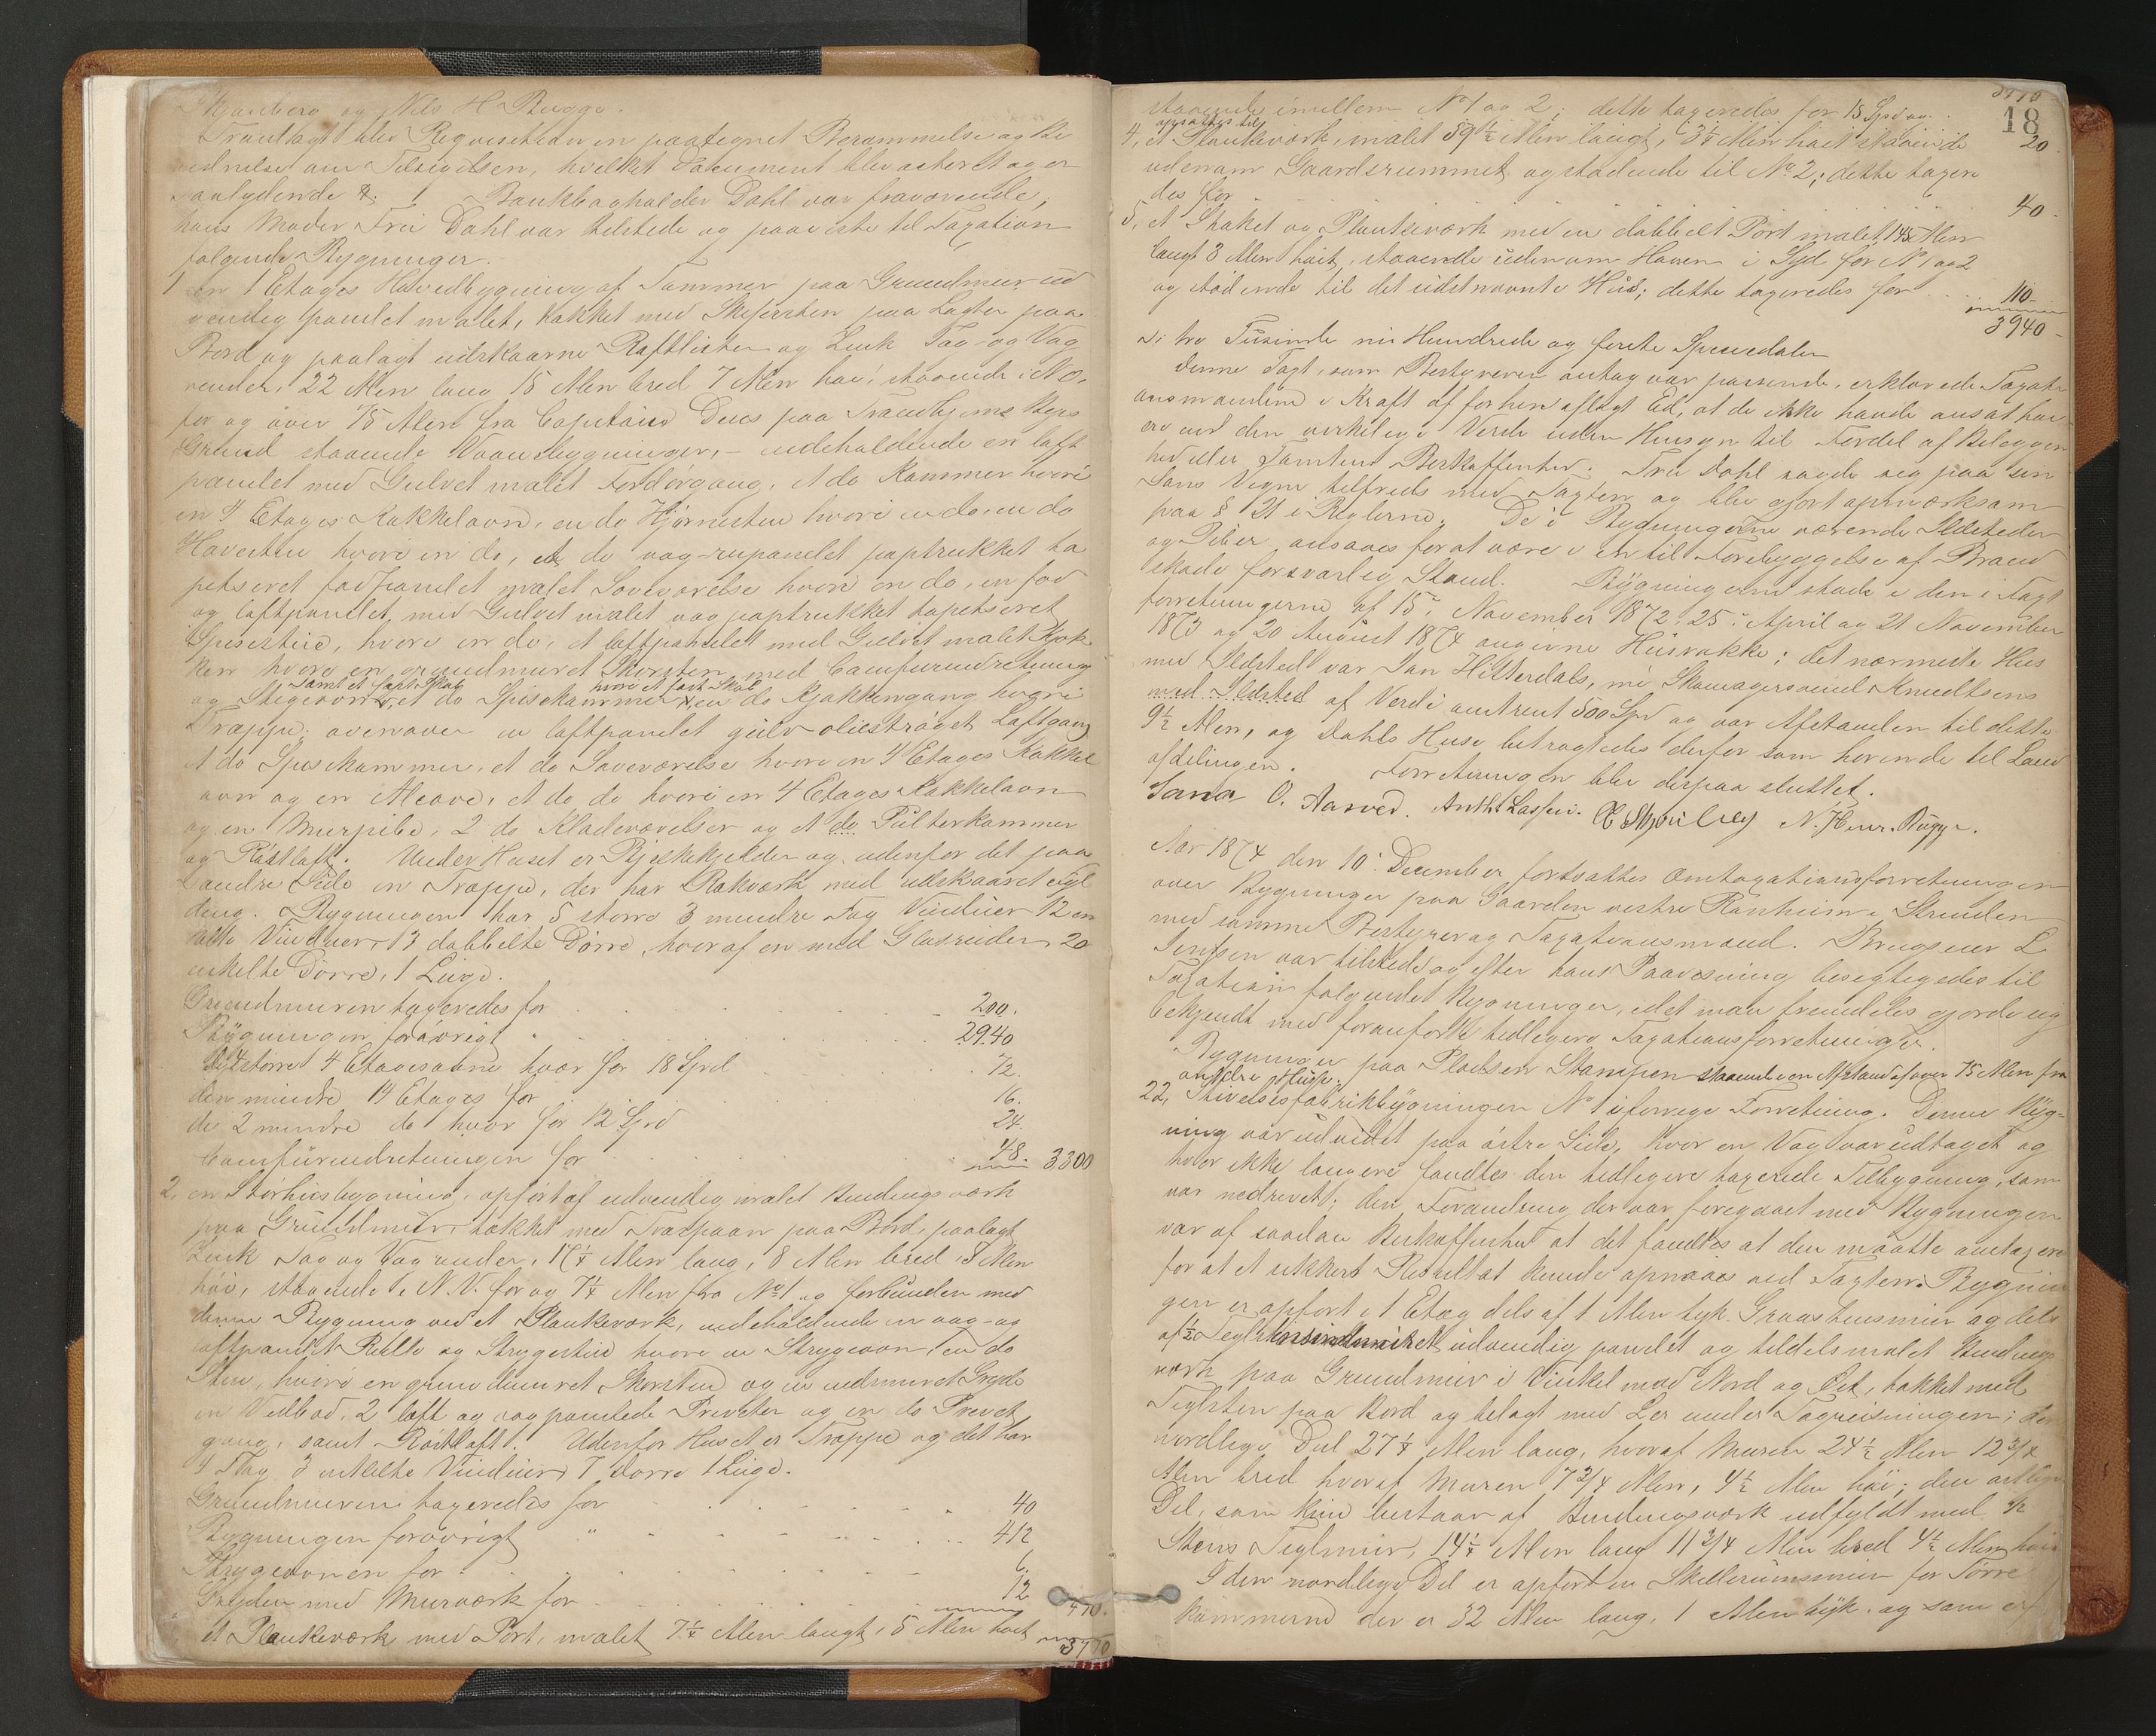 Skjanberg og Nils H Bugge.
Fremlagt blev Reqvisitionen paategnet Berammelse og Be
om Tilsigelsen, hvilket Document blev acteret og er
saalydende &. 1 Bankbogholder Dahl var fraværende,
hans Moder Frü Dahl var tilstede og paaviste til Taxation
følgende Bygninger.
1 en 1 Etages Hovedbygning af Tømmer paa Grundmuur üd
vendig panelet malet, takket med Skifersten paa Lagter paa
Bord og paalagt udskaarne Raftlister og Zink Tag- og Vag
render, 22 Alen lang 15 Alen bred 7 Alen høi, staaende i N.O.
for og over 75 Alen fra Capitain Dues paa Trondhjems Byes
Grund staaende Vaaningsbygninger, - indeholdende en loft
panelet med Gulvet malet Fordørgang, et do Kammer hvori
en 4 Etages Kakkelovn, en do Hjørnestue hvori en do, en do
Havestue hvori en do, et do vag-panelet paptrukket ta
petseret fodpanelet malet Soveværelse hvori en do, en fod
og loftpanelet, med Gulvet malet vag paptrukket tapetseret
Spisestüe, hvori en do, et loftpanelet med Gulvet malet Kjøk-
ken hvori en grundmuret Skorsten med Comfurindretning
samt et fast Skab hvori et fast Skab
og Stegeovn, et do Spisekammer, en do Kjøkkengang hvori
Trappe; ovenover en loftpanelet gulv oliestrøget Loftgang
et do Spisekammer, et do Soveværelse hvori en 4 Etages Kakkel
ovn og en Alcove, et do do hvori en 4 Etages Kakkelovn
og en Murpibe, 2 do Klædeværelser og et do Pulterkammer
og Røstloft. Under Huset er Bjelkekjelder og udenfor det paa
Søndre Side en Trappe, der har Rakværk med udskaaret Fyl
ding. Bygningen har 5 større 3 mindre Fag Vinduer 12 en
kelte Vinduer, 13 dobbelte Dørre, hvoraf en med Glasruder, 20
enkelte Dørre, 1 Luge.
Grundmuren taxeredes for 200.
Bygningen forøvrigt " 2940
4 større 4 Etagesovne hver for 18 Spd 72.
den mindre 4 Etages for 16.
de 2 mindre do hver for 12 Spd 24.
Comfurindretningen for 48. 3300
2, en Storhusbygning, opført af udvendig malet Bindingsværk
paa Grundmuur, takket med Træspaan paa Bord, paalagt
Zink Tag og Vagrender, 17¼ Alen lang, 8 Alen bred, 8 Alen
høi, staaende i N.V. for og 7¼ Alen fra No 1 og forbunden med
denne Bygning ved et Plankeværk, indeholdende en vag- og
loftpanelet Rulle og Strygestue hvori en Strygeovn, en do
Stue, hvori en grundmuret Skorsten og en indmuret Gryde
en Vedbod, 2 loft og vagpanelede Priveter og en do Privet
gang, samt Røstloft. Udenfor Huset er Trappe og det har
4 Fag 3 enkelte Vinduer 7 Dørre 1 Luge.
Grundmuren taxeredes for 40
Bygningen forøvrigt " 412
Strygeovnen for 6.
Gryden med Murværk for 12 470.
et Plankeværk med Port, malet 7¼ Alen langt, 5 Alen høit 3770
3770
18
staaende imellem No 1 og 2; dette taxeredes for 15 Spd og
opsattes til 20
4, et Plankeværk, malet 59½ Alen langt, 3¼ Alen høit staaende
udenom Gaardsrummet og stødende til No 2; dette taxere
des for 40.
5, et Staket og Plankeværk med en dobbelt Port malet, 145 Alen
langt 3 Alen høit, staaende udenom Haven i Syd for No 1 og 2
og stødende til det sidstnævnte Hüs; dette taxeredes for 110-
3940-
D: tre Tüsinde ni Hundrede og førti Speciedaler
Denne Taxt, som Bestyreren antog var passende, erklærede Taxati
onsmændene i Kraft af forhen aflagt Ed, at de ikke havde ansat høi
ere end den virkelige Værdi uden Hensyn til Fordel af Beliggen
hed eller Tomtens Beskaffenhed. Frü Dahl sagde sig paa sin
Søns Vegne tilfreds med Taxten og blev gjort opmærksom
paa § 21 i Reglerne. De i Bygningerne værende Ildsteder
og Piber ansaaes for at være i en til Forebyggelse af Brand
skade forsvarlig Stand. Bygningerne stode i den i Taxt
forretningerne af 15. November 1872, 25. April og 21 November
1873 og 20 August 1874 angivne Husrække; det nærmeste Hus
med Ildsted var Jan Hitterdals, nu Skomagersvend Knudtsens
med Ildsted af Verdi omtrent 500 Spd og var Afstanden til dette
9½ Alen, og Dahls Huse betragtedes derfor som hørende til Land
afdelingen. Forretningen blev derpaa sluttet.
Jana O. Aarved. Anth. Lassen. N. Henr. Bugge.
Aar 1874 den 10. December fortsattes Omtaxationsforretningen
over Bygninger paa Gaarden vestre Ranheim i Strinden
med samme Bestyrer og Taxationsmænd. Brugseier L
Jenssen var tilstede og efter hans Paavisning besigtigedes til
Taxation følgende Bygninger, idet man fremdeles gjorde sig
bekjendt med foranførte tidligere Taxationsforretninger.
Bygninger paa Pladsen Stampen staaende i en Afstand af over 75 Alen fra
andre Huse.
22, Stivelsesfabrikbygningen No 1 i forrige Forretning. Denne Byg-
ning var udvidet paa østre Side, hvor en Vag var udtaget og
hvor ikke længere fandtes den tidligere taxerede Tilbygning, som
var nedrevet; den Forandring der var foregaaet med Bygningen
var af saadan Beskaffenhed at det fandtes at den maatte omtaxeres
for at et sikkert Resultat kunde opnaaes ved Taxten. Bygnin
gen er opført i 1 Etage dels af 1 Alen tyk Graastensmuur og dels
af ½ udvendig panelet og tildels malet Bindings
værk paa Grundmuur i Vinkel mod Nord og Øst, takket med
Teglsten paa Bord og belagt med Ler under Tagreisningen; den
nordlige Del 27¼ Alen lang, hvoraf Muren 24½ Alen 12 3/4
Alen bred hvoraf Muren 7 3/4 Alen, 4½ Alen høi; den østlige
Del, som kun bestaar af Bindingsværk udfyldt med ½
Stens Teglmuur, 14¼ Alen lang 11 3/4 Alen bred 4½ Alen høi.
I den nordlige Del er opført en Skillerumsmuur for Tørre
kammerne der er 32 Alen lang, 1 Alen tyk, og som er